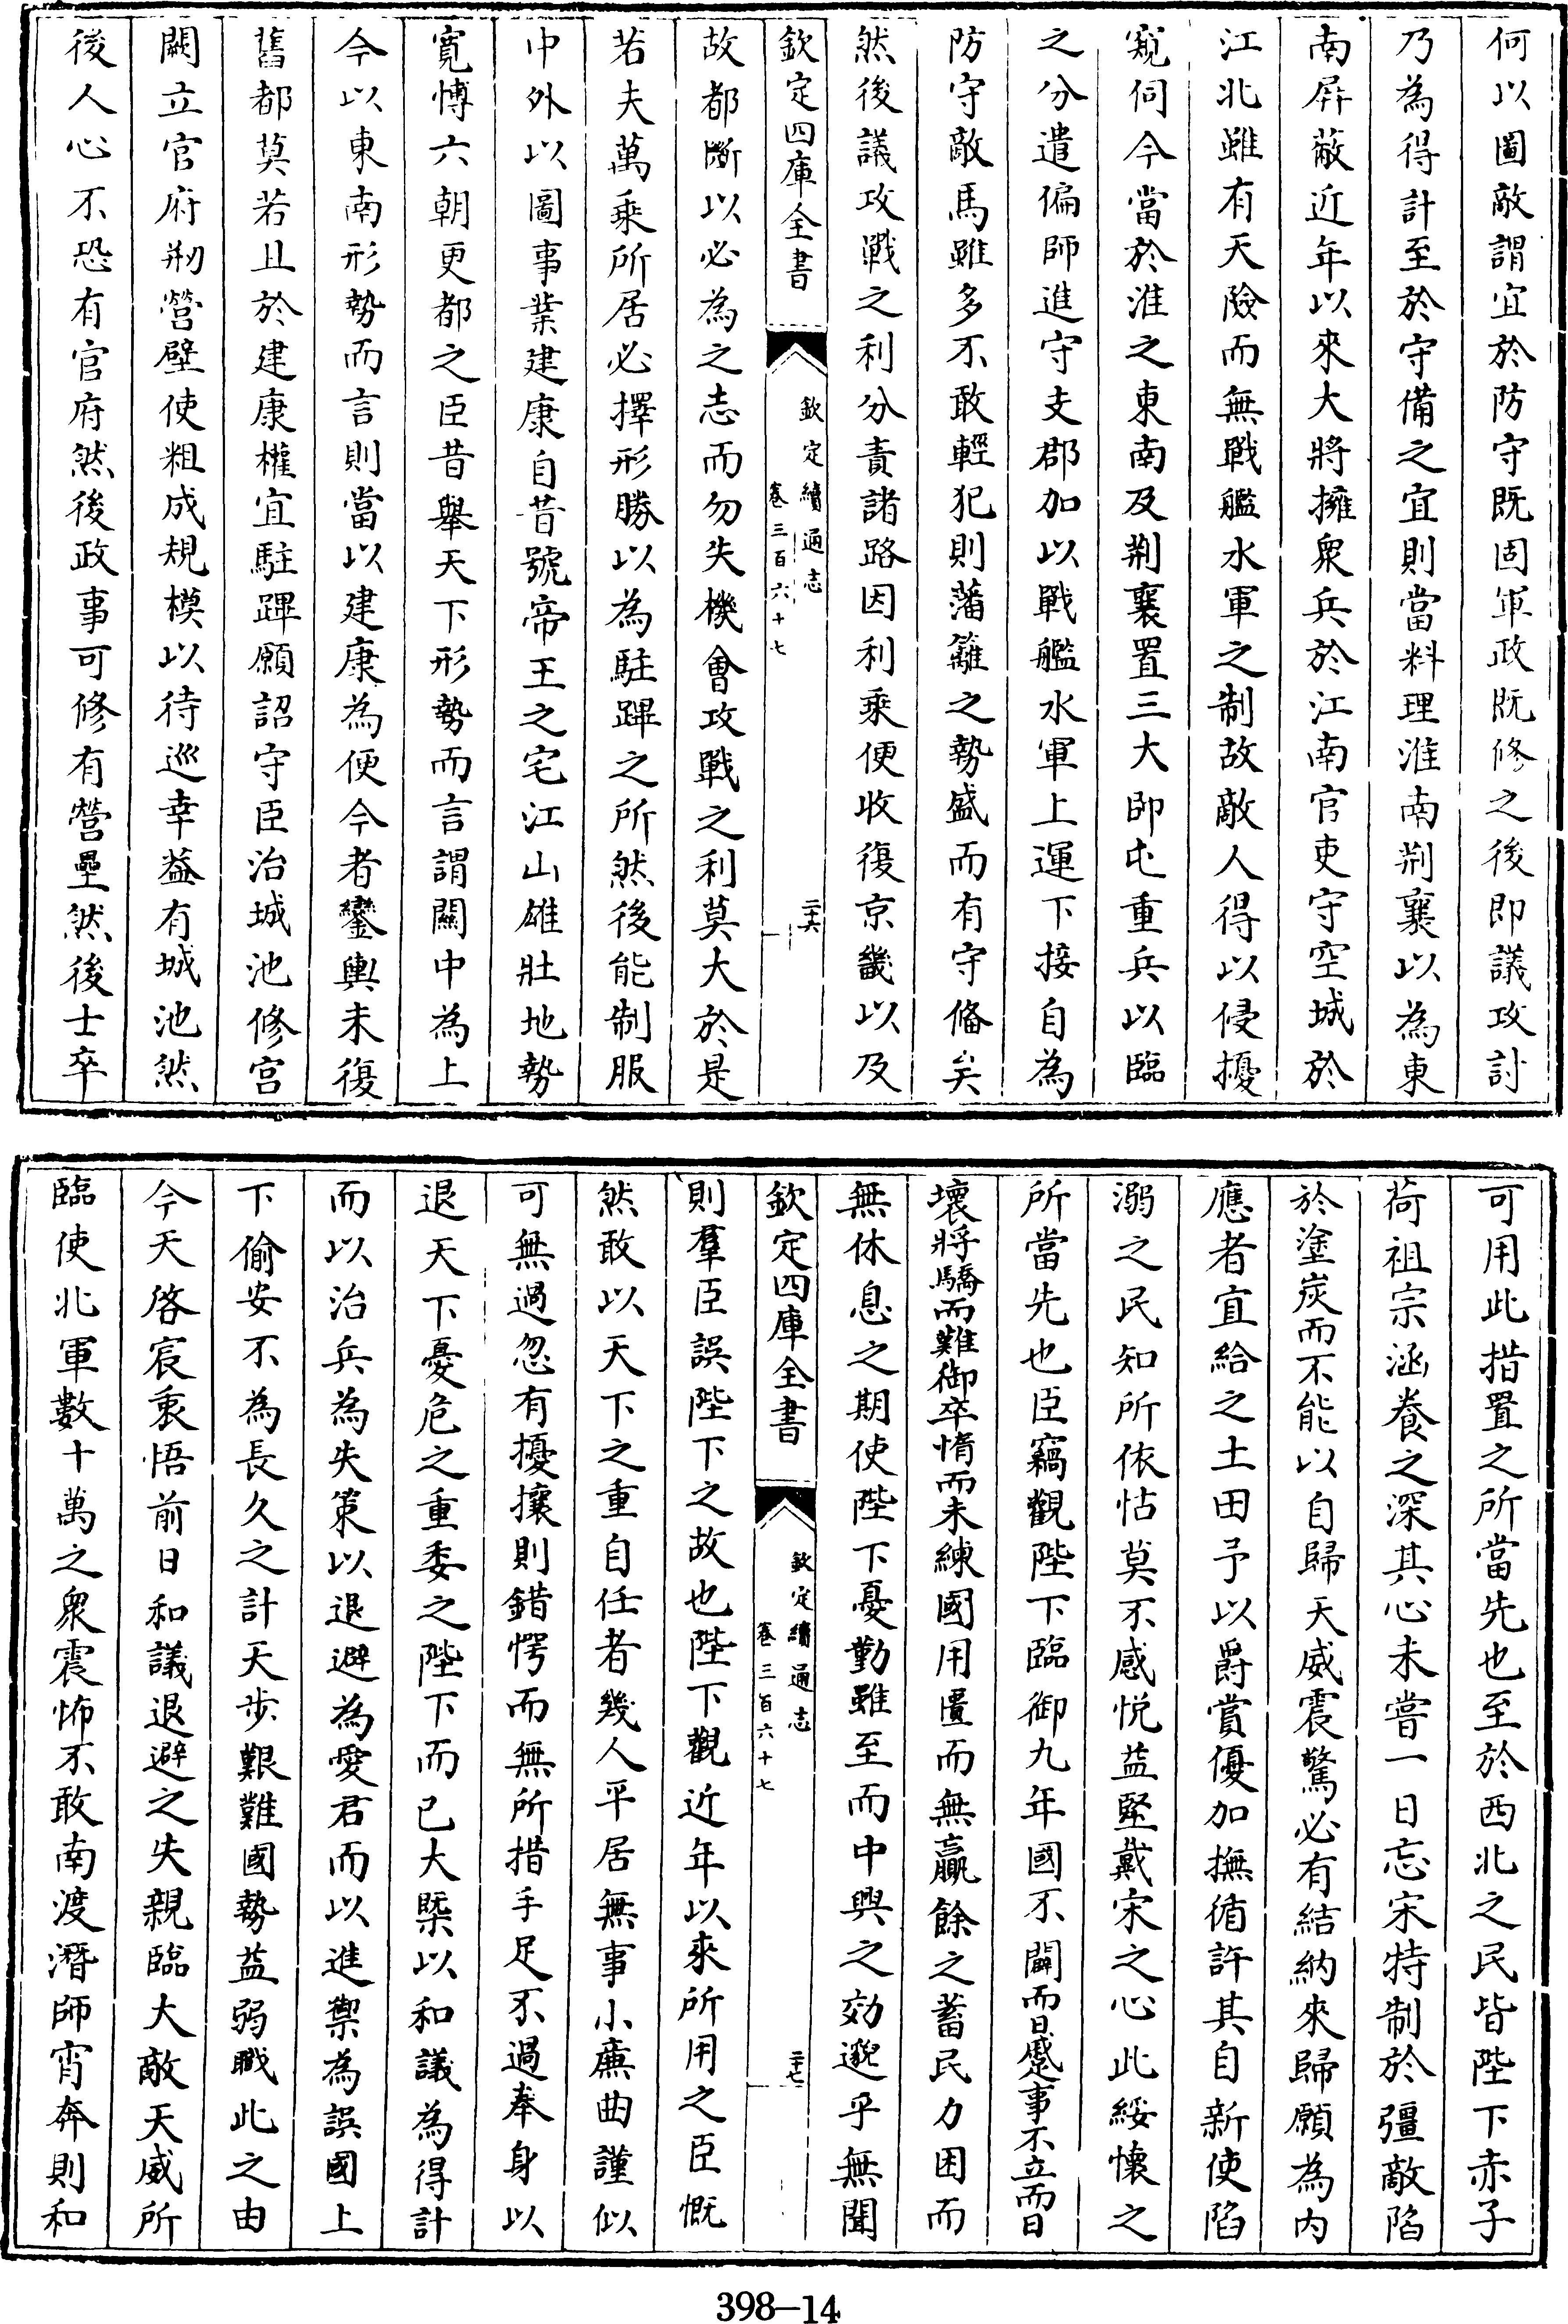 何以圖敵謂宜於防守既固軍政既修之後即議攻討
乃為得計至於守備之宜則當料理淮南荆襄以為東
南屏蔽近年以來大將擁衆兵於江南官吏守空城於
江北雖有天險而無戰艦水軍之制故敵人得以侵擾
窺伺今當於淮之東南及荆襄置三大帥屯重兵以臨
之分遣偏師進守支郡加以戰艦水軍上運下接自為
防守敵馬雖多不敢輕犯則藩籬之勢盛而有守備矣
然後議攻戰之利分責諸路因利乘便收復京畿以及
欽定四庫全書
欽定續通志
卷三百六十七
二十六
故都斷以必為之志而勿失機會攻戰之利莫大於是
若夫萬乘所居必擇形勝以為駐蹕之所然後能制服
中外以圖事業建康自昔號帝王之宅江山雄壯地勢
寛博六朝更都之臣昔舉天下形勢而言謂關中為上
今以東南形勢而言則當以建康為便今者鑾輿未復
舊都莫若且於建康權宜駐蹕願詔守臣治城池修宫
闕立官府剏營壁使粗成規模以待巡幸益有城池然
後人心不恐有官府然後政事可修有營壘然後士卒
可用此措置之所當先也至於西北之民皆陛下赤子
荷祖宗涵養之深其心未嘗一日忘宋特制於彊敵陷
於塗炭而不能以自歸天威震驚必有結納來歸願為内
應者宜給之土田予以爵賞優加撫循許其自新使陷
溺之民知所依怙莫不感悦益堅戴宋之心此綏懷之
所當先也臣竊觀陛下臨御九年國不闢而日蹙事不立而日
壞將驕而難御卒惰而未練國用匱而無贏餘之蓄民力困而
無休息之期使陛下憂勤雖至而中興之効邈乎無聞
欽定四庫全書
欽定續通志
卷三百六十七
二十七
則羣臣誤陛下之故也陛下觀近年以來所用之臣慨
然敢以天下之重自任者幾人平居無事小亷曲謹似
可無過忽有擾攘則錯愕而無所措手足不過奉身以
退天下憂危之重委之陛下而已大槩以和議為得計
而以治兵為失策以退避為愛君而以進禦為誤國上
下偷安不為長久之計天步艱難國勢益弱職此之由
今天啓宸衷悟前日和議退避之失親臨大敵天威所
臨使北軍數十萬之衆震怖不敢南渡潛師宵奔則和
398—14